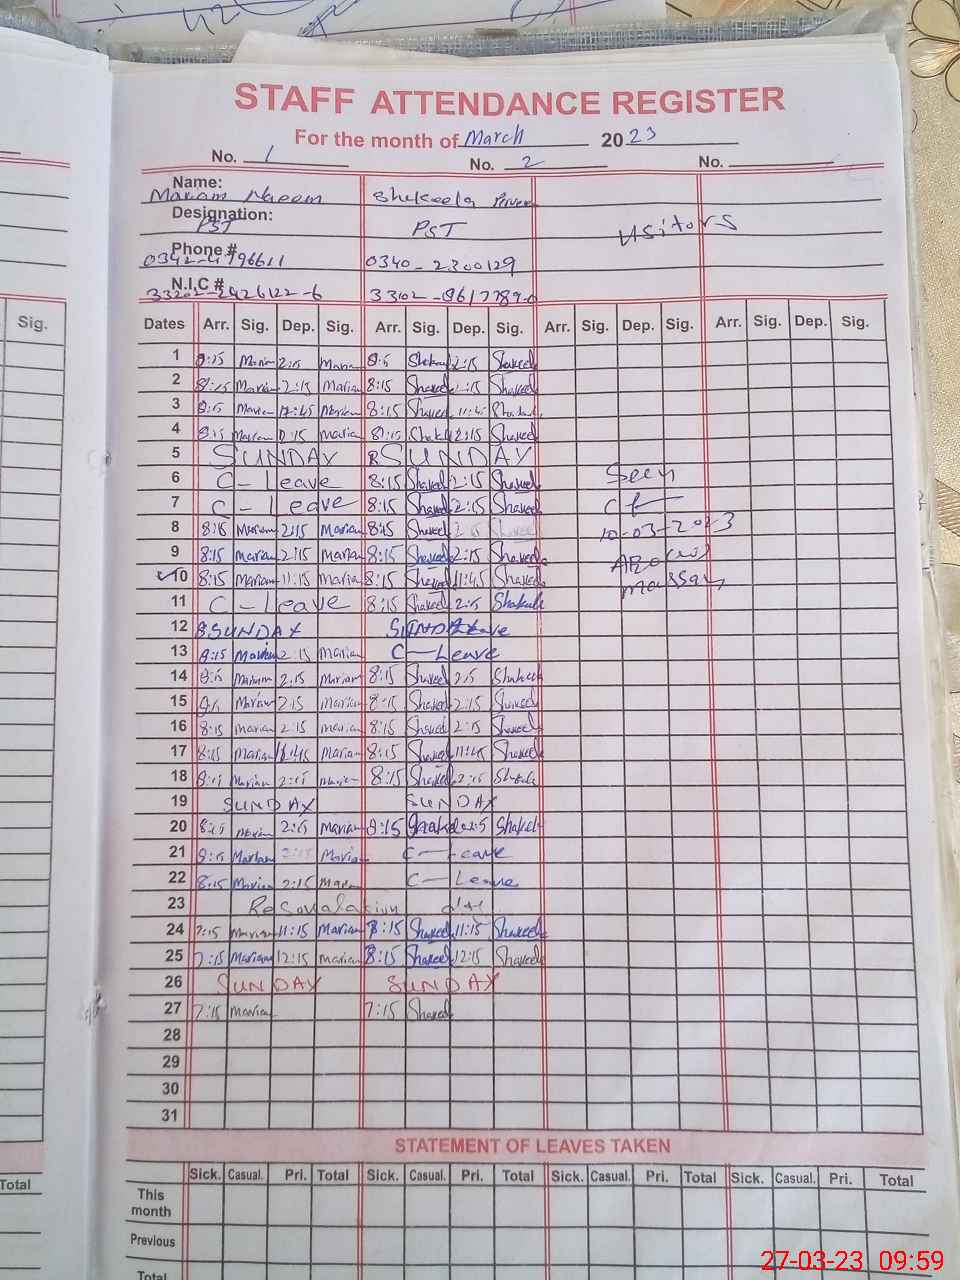 STAFF ATTENDANCE REGISTER
For the month of March 2023
No. 1 No. 2 No.
Name: Mariam Naeem Shakeela Perveen
Designation: PST PST visitors
Phone # 0340-2300129
N.I.C #
Sig. Dates Arr. Sig. Dep. Sig. Arr. Sig. Dep. Sig. Arr. Sig. Dep. Sig. Arr. Sig. Dep. Sig.
1 8:15 Mariam 2:15 Mariam Shakeel 2:15 Shakeel
2 8:15 Mariam 2:15 Mariam 8:15 Shakeel 2:15 Shakeel
3 8:15 Mariam Mariam 8:15 Shakeel 11:45
4 8:15 Mariam 2:15 Mariam 8:15 Shakeel 2:15 Shakeel
5 SUNDAY SUNDAY
6 C-Leave 8:15 Shakeel 2:15 Shakeel Seen
7 C-Leave 8:15 Shakeel 2:15 Shakeel
8 8:15 Mariam 2:15 Mariam 8:15 Shakeel 2:15 Shakeel 10-03-2023
9 8:15 Mariam 2:15 Mariam 8:15 Shakeel 2:15 Shakeel
10 8:15 Mariam 11:15 Mariam 8:15 Shakeel 11:45 Shakeel
11 C-Leave 8:15 Shakeel 2:15 Shakeel
12 SUNDAY SUNDAY
13 8:15 Mariam 2:15 Mariam C-Leave
14 8:15 Mariam 2:15 Mariam 8:15 Shakeel 2:15 Shakeel
15 8:15 Mariam 2:15 Mariam 8:15 Shakeel 2:15 Shakeel
16 8:15 Mariam 2:15 Mariam 8:15 Shakeel 2:15 Shakeel
17 8:15 Mariam Mariam 8:15 Shakeel 11:45 Shakeel
18 8:15 Mariam 2:15 Mariam 8:15 Shakeel 2:15 Shakeel
19 SUNDAY SUNDAY
20 8:15 Mariam 2:15 Mariam 8:15 Shakeel 2:15 Shakeel
21 8:15 Mariam 2:15 Mariam C-Leave
22 8:15 Mariam 2:15 Mariam C-Leave
23
24 7:15 Mariam 11:15 Mariam 8:15 Shakeel 11:15 Shakeel
25 7:15 Mariam 12:15 Mariam 8:15 Shakeel 12:15 Shakeel
26 SUNDAY SUNDAY
27 7:15 Mariam 7:15 Shakeel
28
29
30
31
STATEMENT OF LEAVES TAKEN
Sick. Casual. Pri. Total Sick. Casual. Pri. Total Sick. Casual. Pri. Total Sick. Casual. Pri. Total
Total This
month
Previous
Total
27-03-23 09:59